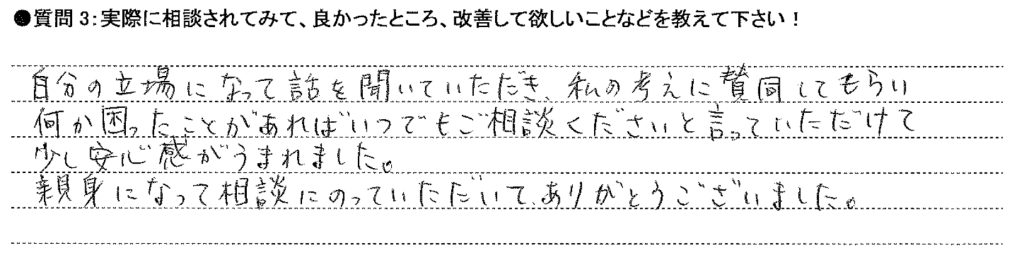 ●質問3:実際に相談されてみて、良かったところ、改善して欲しいことなどを教えて下さい!
自分の立場になって話を聞いていただき、私の考えに賛同してもらい
何か困ったことがあればいつでもご相談くださいと言っていただけて
少し安心感がうまれました。
親身になって相談にのっていただいて、ありがとうございました。